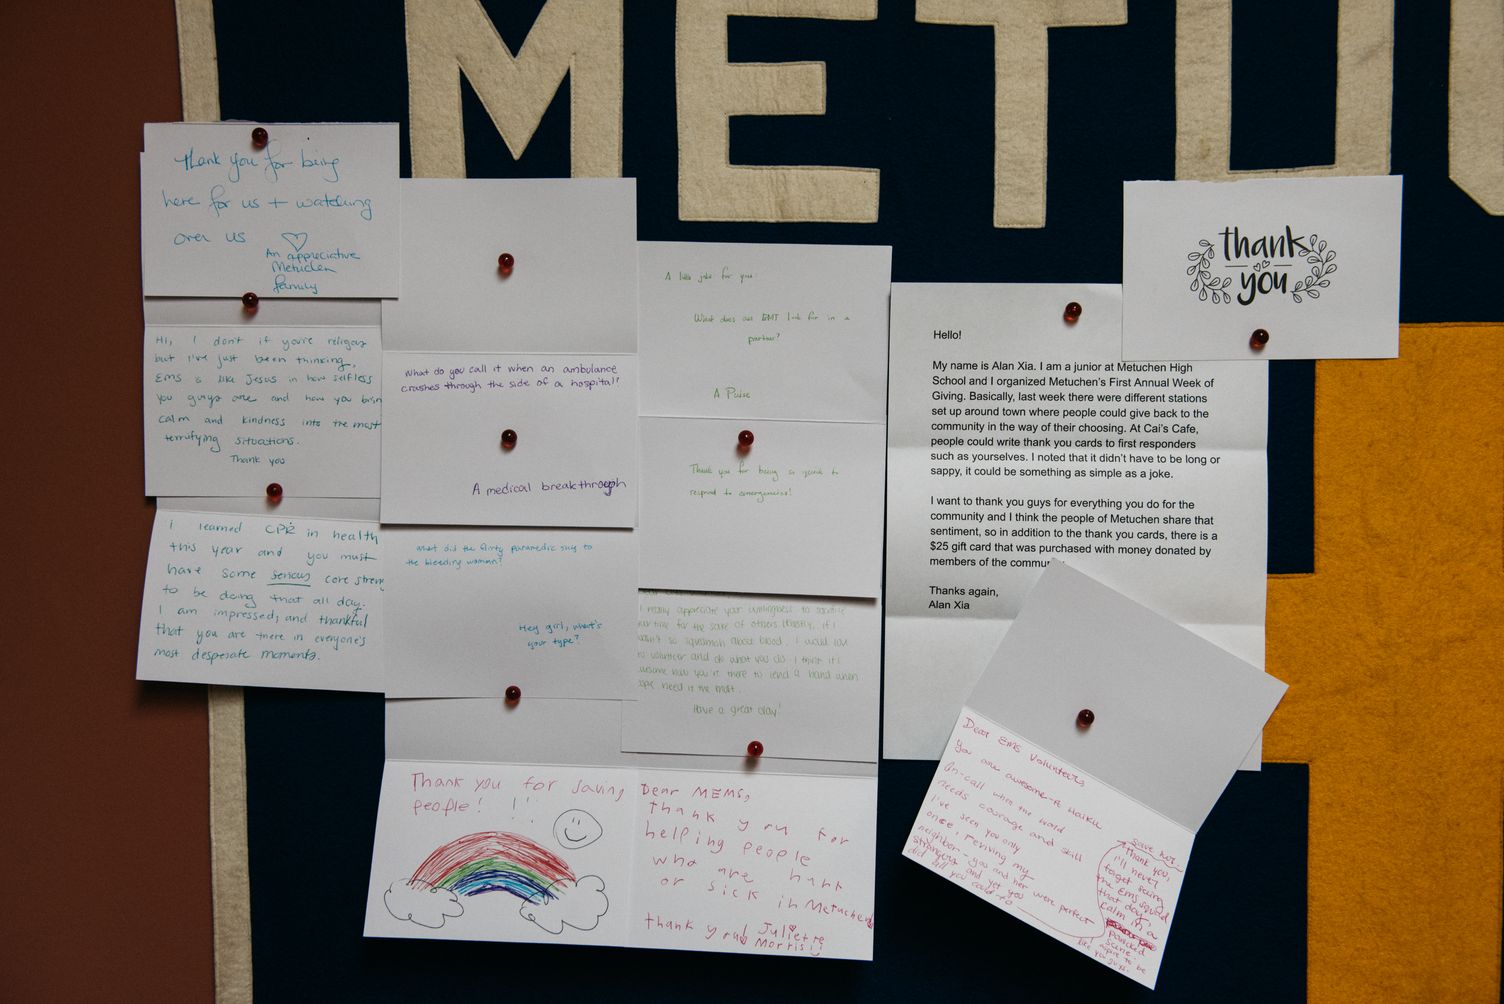 METU
thank you for being
here for us + watching
over us
An appreciative
Metuchen
family
Hi, I don't if you're religous
but I've just been thinking,
EMS is like Jesus in how selfless
you guys are and how you brin
calm and kindness into the most
terrifying situations.
Thank you
I learned CPR in health
this year and you must
have some serious core stren
to be doing that all day.
I am impressed, and thankful
that you are there in everyone's
most desperate moments.
What do you call it when an ambulance
crashes through the side of a hospital?
A medical breakthrough
What did the flirty paramedic say to
the bleeding woman?
Hey girl, what's
your type?
Thank you for saving
people! ! ! !
A little joke for you:
What does an EMT look for in a
partner?
A Pulse
Thank you for being so quick to
respond to emergencies!
I really appreciate your willingness to sacrifice
ur time for the sake of others. Honestly, if I
wasn't so squeamish about blood, I would love
to volunteer and do what you do. I think it's
awesome how you're there to lend a hand when
need it the most.
Have a great day!
Dear MEMS,
thank you for
helping people
who are hurt
or sick in Metuchen
thank you! Juliette
Morris!
thank
you
Hello!
My name is Alan Xia. I am a junior at Metuchen High
School and I organized Metuchen's First Annual Week of
Giving. Basically, last week there were different stations
set up around town where people could give back to the
community in the way of their choosing. At Cai's Cafe,
people could write thank you cards to first responders
such as yourselves. I noted that it didn't have to be long or
sappy, it could be something as simple as a joke.
I want to thank you guys for everything you do for the
community and I think the people of Metuchen share that
sentiment, so in addition to the thank you cards, there is a
$25 gift card that was purchased with money donated by
members of the commu
Thanks again,
Alan Xia
Dear EMS Volunteers,
you are awesome - A Haiku
On-call when the word
needs courage and skill
I've seen you only
once, reviving my
neighbor - you and her were perfect
strangers and yet you
did all you could to
save her -
thank you,
I'll never
forget seeing
the EMS squad
that day,
calm in a
panicked
scene.
I aspire to be
like you guys.